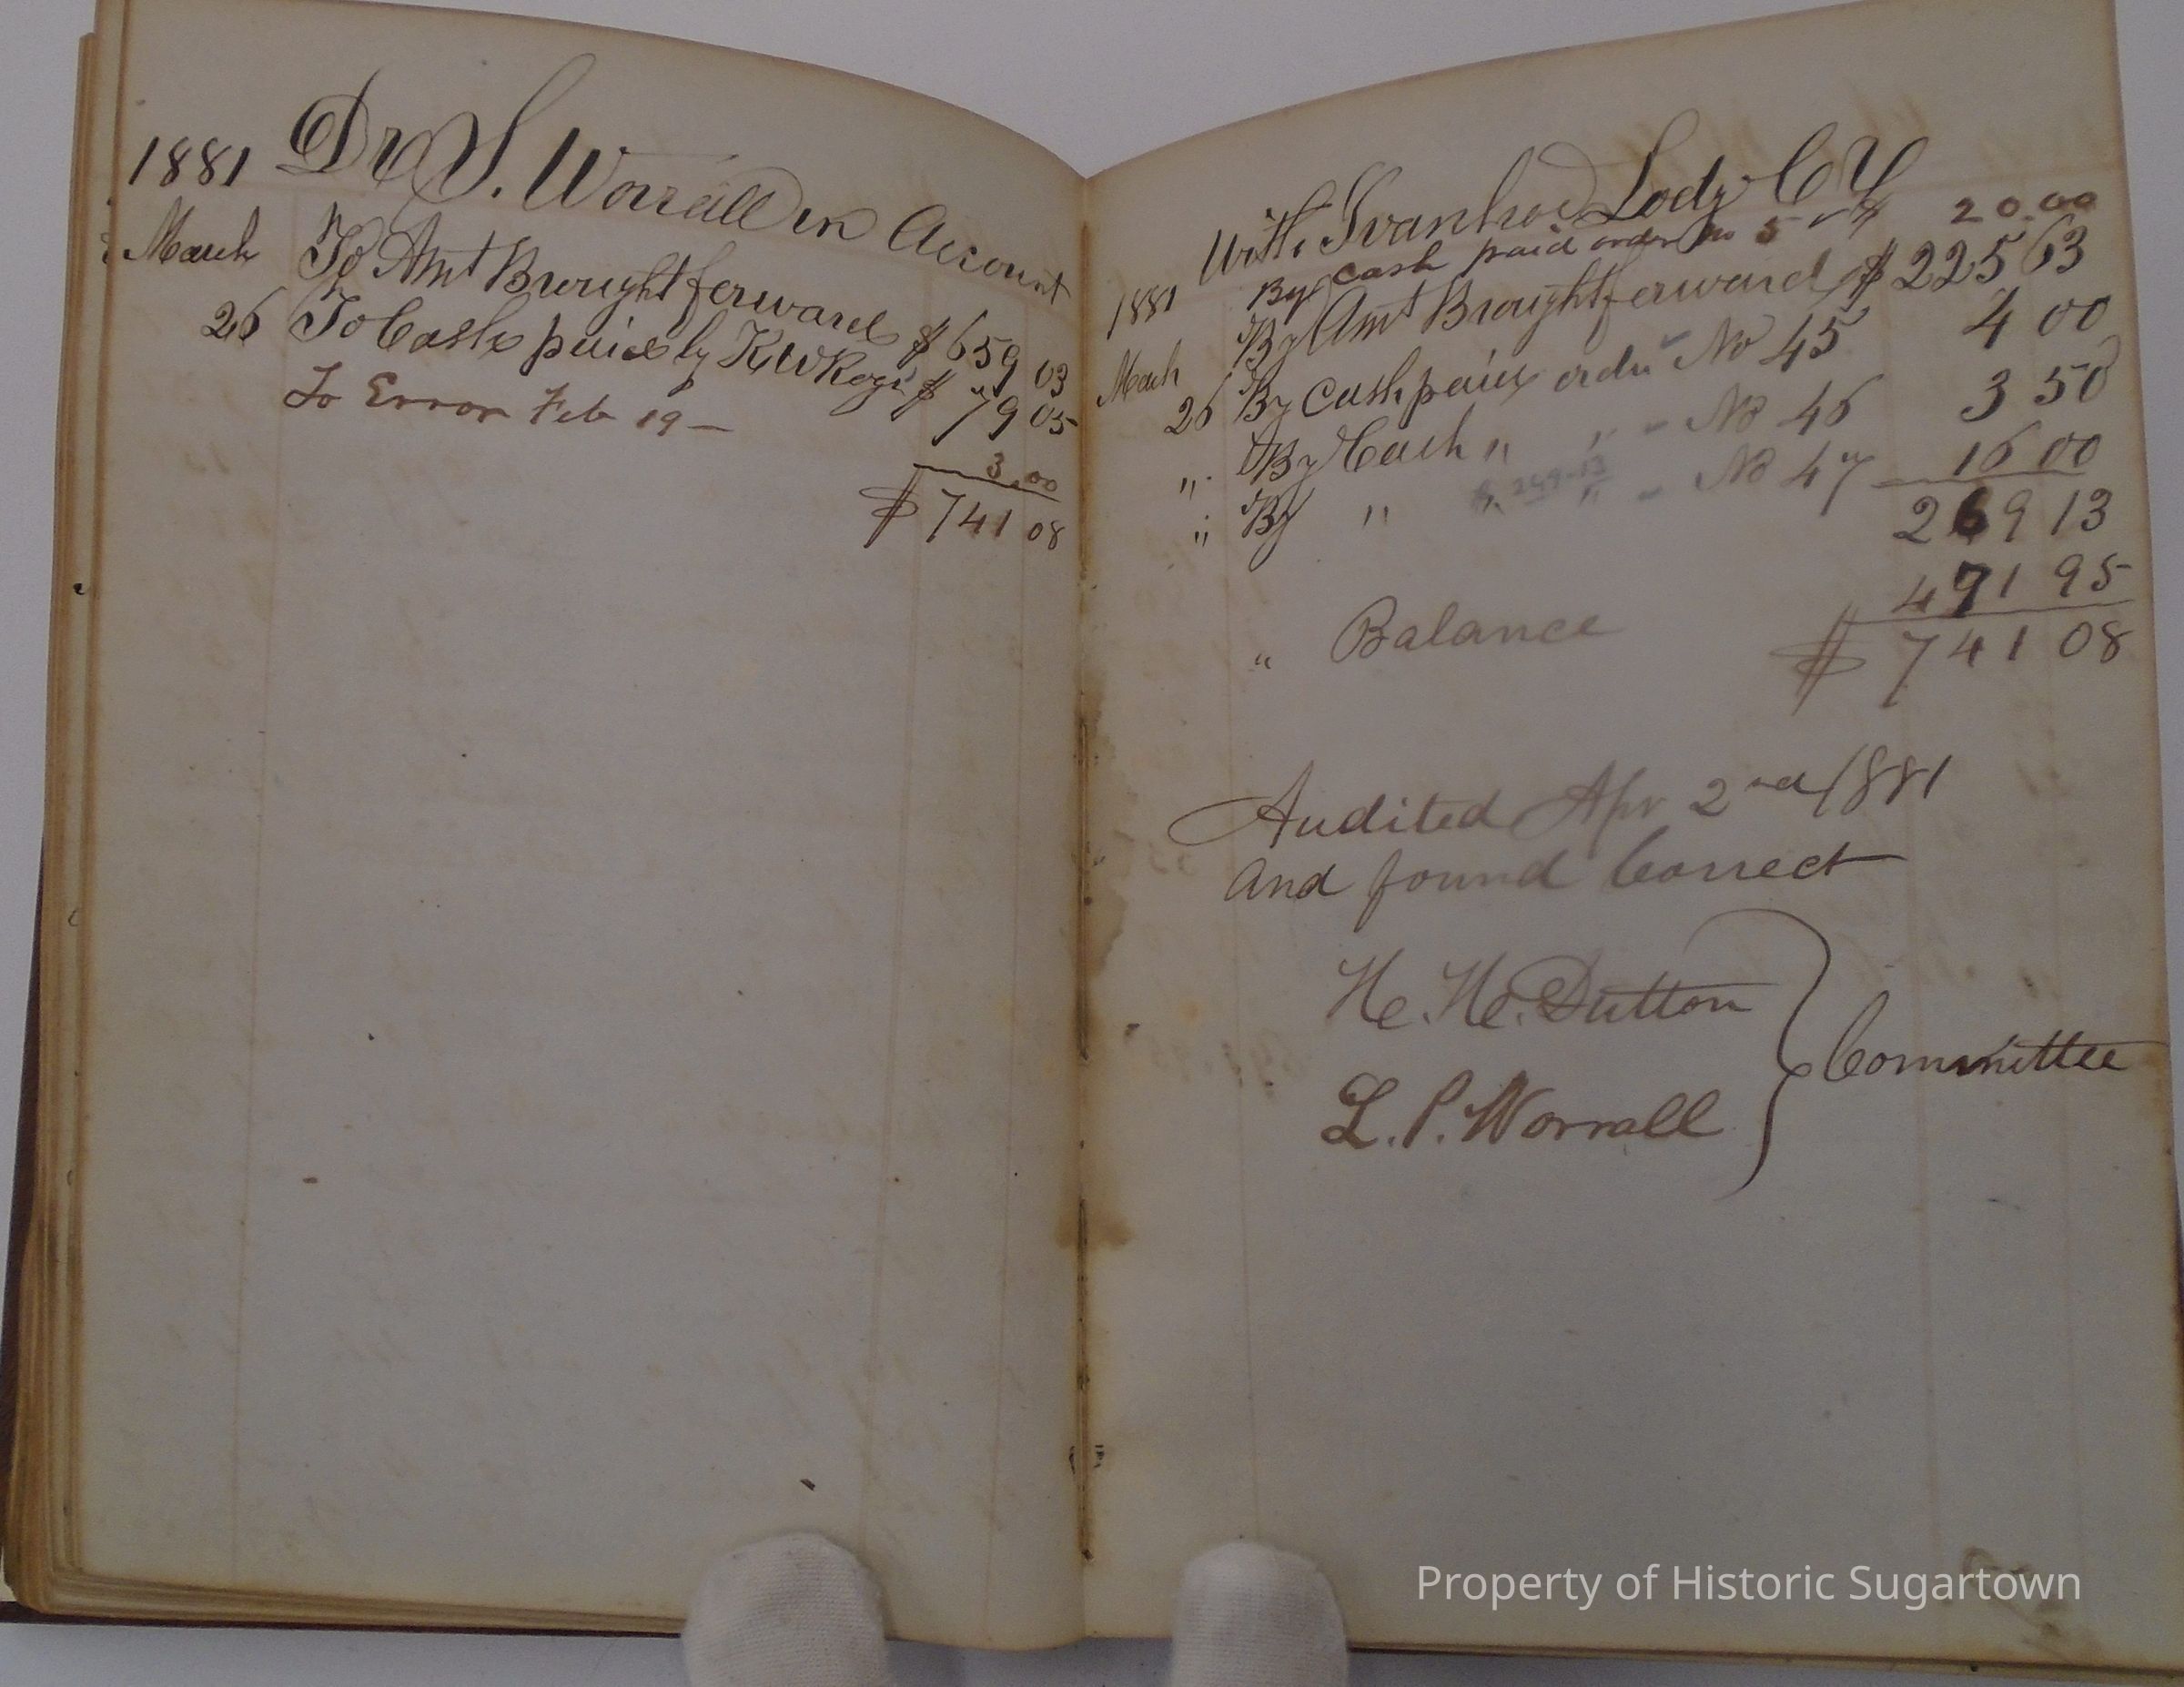 1881 Dr S. Worrall in Account
March To Amt Brought forward $ 659 03
26 To Cash paid by K W Rogr $ 79 05
To Error Feb 19 — 3.00
$ 741 08
With Ivanhoe Lody C Y
By Cash paid order no 5 20.00
1881 By Amt Brought forward $ 225 63
March 26 By Cash paid order No 45 4 00
" By Cash " " " No 46 3 50
" By " " " No 47 16 00
249-13
269 13
" Balance 471 95
$ 741 08
Audited Apr 2nd 1881
and found Correct
H. H. Dutton
Committee
L. P. Worrall
Property of Historic Sugartown